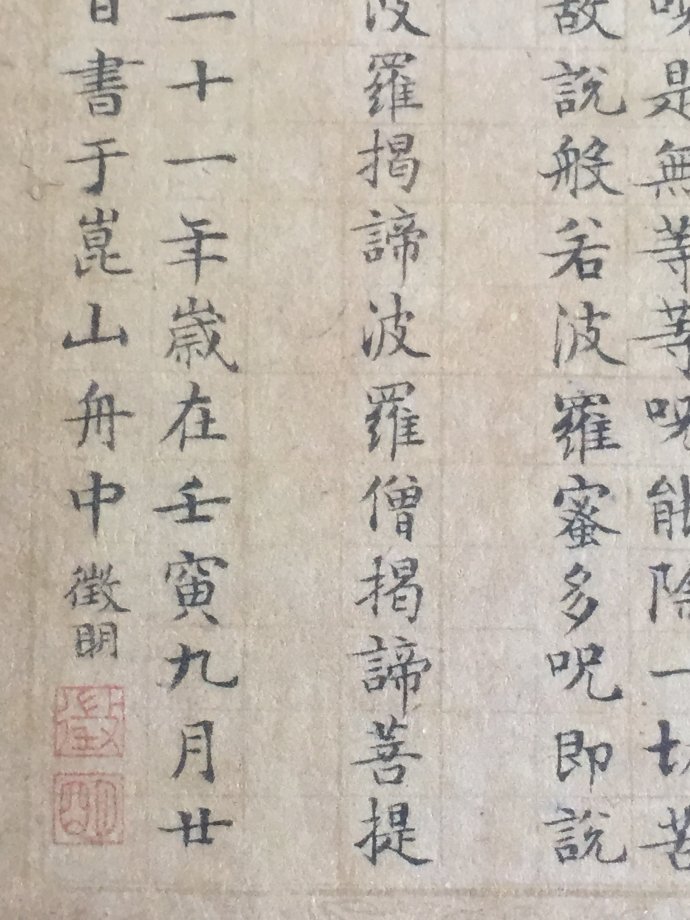 呪是無等等呪能除一切苦
故說般若波羅蜜多呪即說
波羅揭諦波羅僧揭諦菩提
十一年歲在壬寅九月廿
日書于崑山舟中徵明
徵
明